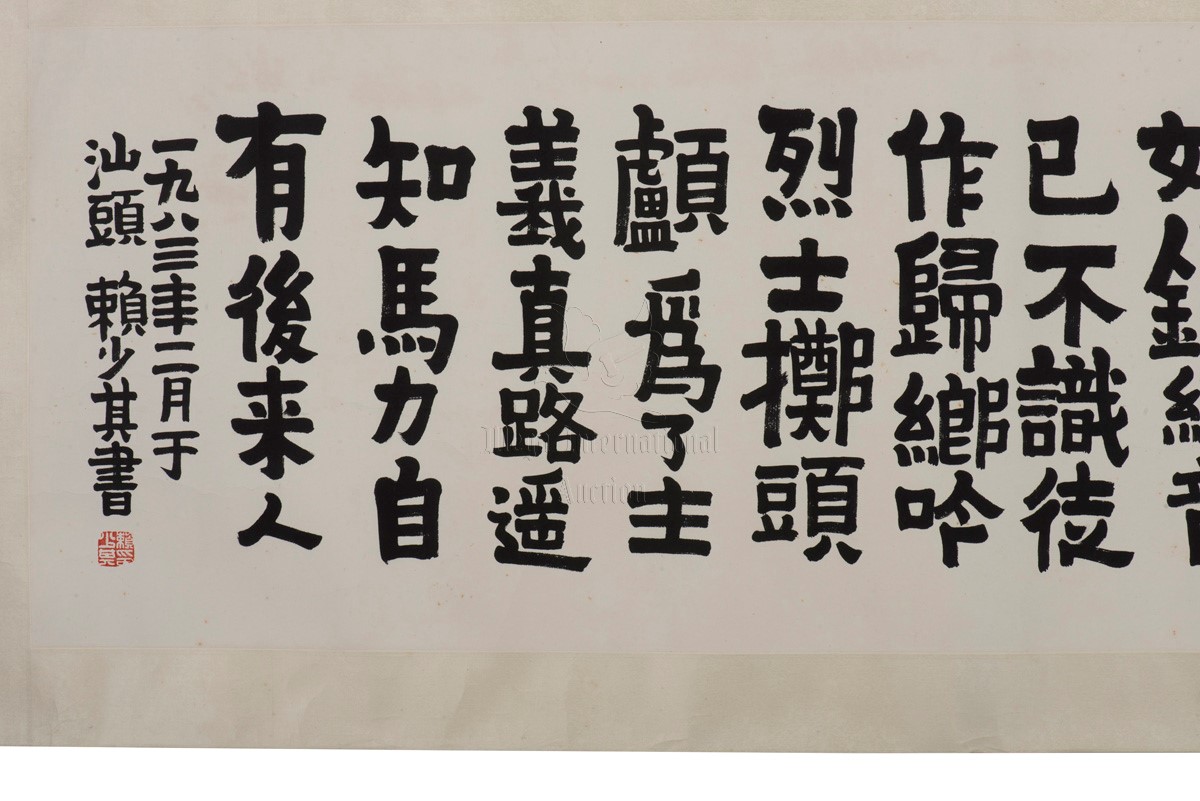 如銓
已不識徒
作歸鄉吟
烈士擲頭
顱爲了主
義真路遥
知馬力自
有後来人
一九八三年二月于
汕頭 賴少其書
International
Auction